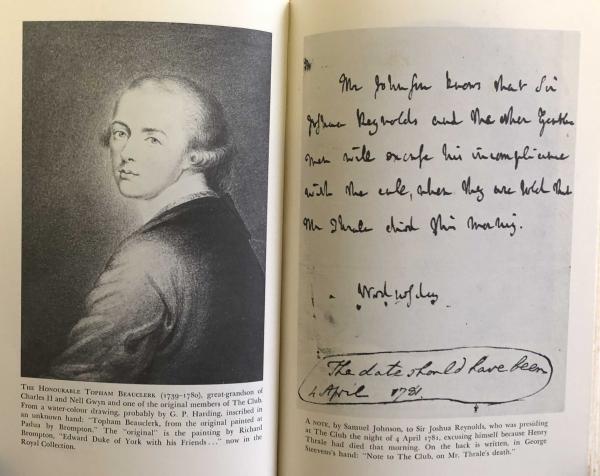 THE HONOURABLE TOPHAM BEAUCLERK (1739–1780), great-grandson of
Charles II and Nell Gwyn and one of the original members of The Club.
From a water-colour drawing, probably by G. P. Harding, inscribed in
an unknown hand: "Topham Beauclerk, from the original painted at
Padua by Brompton." The "original" is the painting by Richard
Brompton, "Edward Duke of York with his Friends..." now in the
Royal Collection.
Mr Johnson knows that Sir
Joshua Reynolds and the other Gentle
men will excuse his incompliance
with the call, when they are told that
Mr Thrale died this morning.
Wednesday
The date should have been
4 April 1781.
A NOTE, by Samuel Johnson, to Sir Joshua Reynolds, who was presiding
at The Club the night of 4 April 1781, excusing himself because Henry
Thrale had died that morning. On the back is written, in George
Steevens's hand: "Note to The Club, on Mr. Thrale's death."